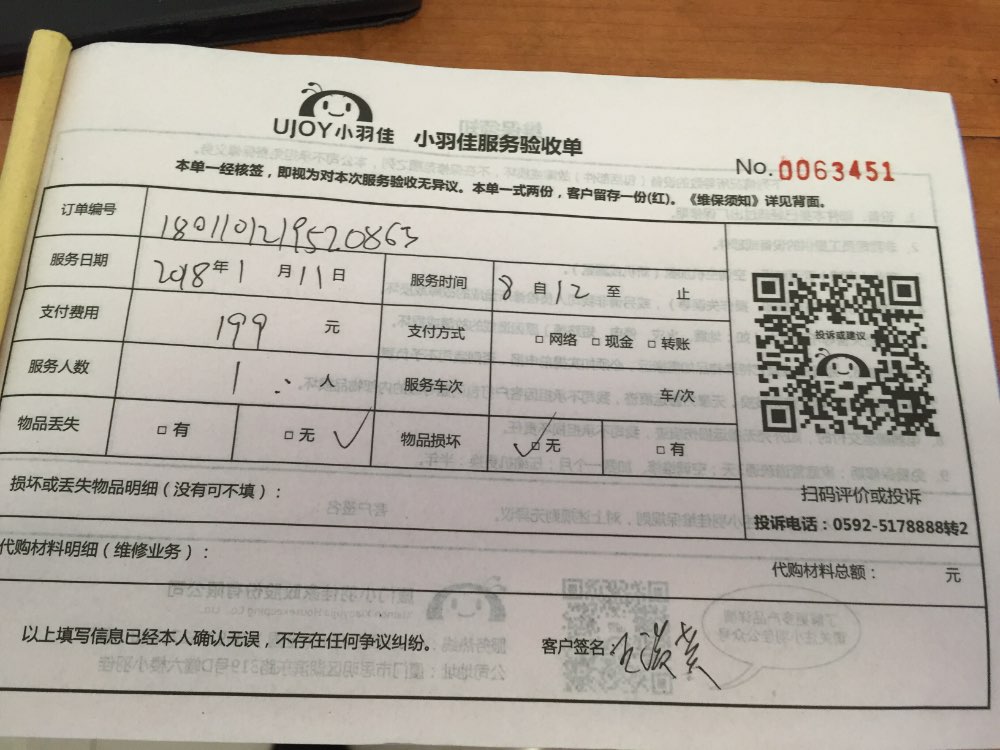 UJOY小羽佳 小羽佳服务验收单
No. 0063451
本单一经核签，即视为对本次服务验收无异议。本单一式两份，客户留存一份(红)。《维保须知》详见背面。
订单编号 1801101219520863
服务日期 2018年1月11日 服务时间 8自12至 止
支付费用 199 元 支付方式 □网络 □现金 □转账
服务人数 1 人 服务车次 车/次
物品丢失 □有 □无 ✓ 物品损坏 ✓□无 □有
投诉或建议
扫码评价或投诉
投诉电话：0592-5178888转2
损坏或丢失物品明细（没有可不填）：
代购材料明细（维修业务）：
代购材料总额： 元
以上填写信息已经本人确认无误，不存在任何争议纠纷。 客户签名：